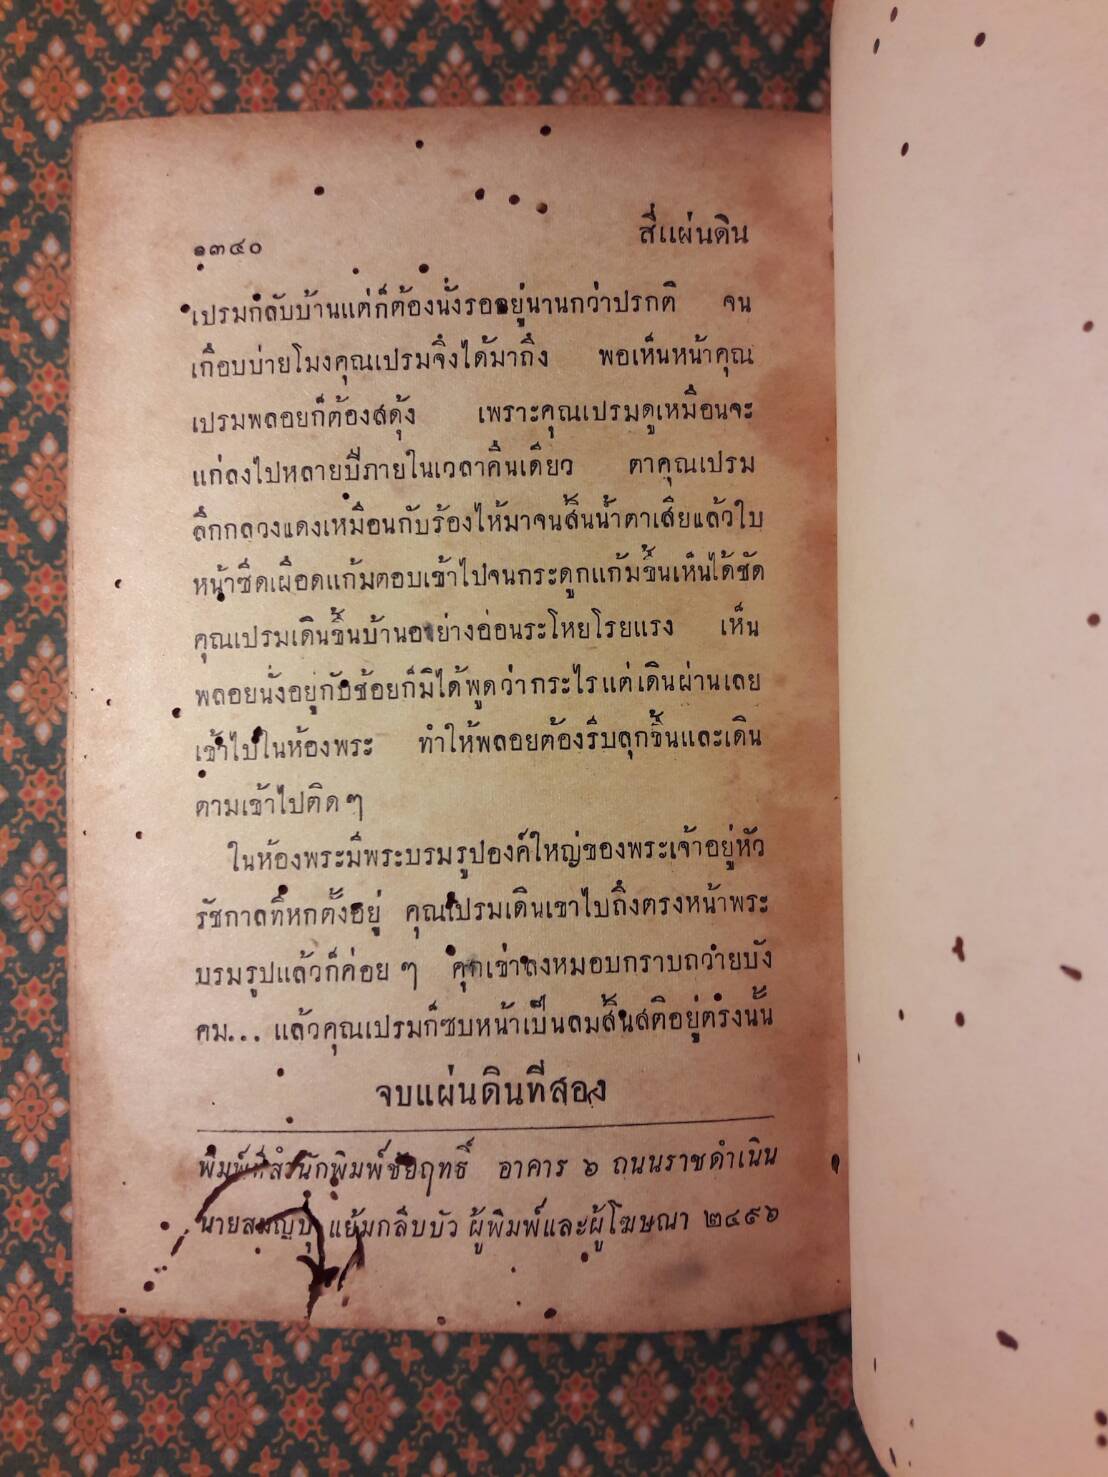 ๑๓๔๐ สี่แผ่นดิน
เปรมกลับบ้านแต่ก็ต้องนั่งรออยู่นานกว่าปรกติ จน
เกือบบ่ายโมงคุณเปรมจึงได้มาถึง พอเห็นหน้าคุณ
เปรมพลอยก็ต้องสดุ้ง เพราะคุณเปรมดูเหมือนจะ
แก่ลงไปหลายปีภายในเวลาคืนเดียว ตาคุณเปรม
ลึกกลวงแดงเหมือนกับร้องไห้มาจนสิ้นน้ำตาเสียแล้วใบ
หน้าซีดเผือดแก้มตอบเข้าไปจนกระดูกแก้มขึ้นเห็นได้ชัด
คุณเปรมเดินขึ้นบ้านอย่างอ่อนระโหยโรยแรง เห็น
พลอยนั่งอยู่กับช้อยก็มิได้พูดว่ากระไรแต่เดินผ่านเลย
เข้าไปในห้องพระ ทำให้พลอยต้องรีบลุกขึ้นและเดิน
ตามเข้าไปติด ๆ
ในห้องพระมีพระบรมรูปองค์ใหญ่ของพระเจ้าอยู่หัว
รัชกาลที่หกตั้งอยู่ คุณเปรมเดินเขาไปถึงตรงหน้าพระ
บรมรูปแล้วก็ค่อย ๆ คุกเข่าลงหมอบกราบถวายบัง
คม... แล้วคุณเปรมก็ซบหน้าเป็นลมสิ้นสติอยู่ตรงนั้น
จบแผ่นดินที่สอง
พิมพ์ที่สำนักพิมพ์ชัยฤทธิ์ อาคาร ๖ ถนนราชดำเนิน
นายสมญบุ แย้มกลีบบัว ผู้พิมพ์และผู้โฆษณา ๒๔๙๖